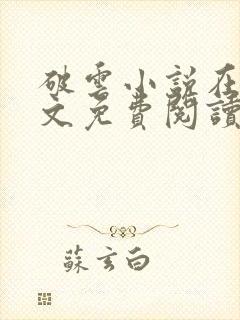 破雲小説在
文免費閱讀
蘇玄白